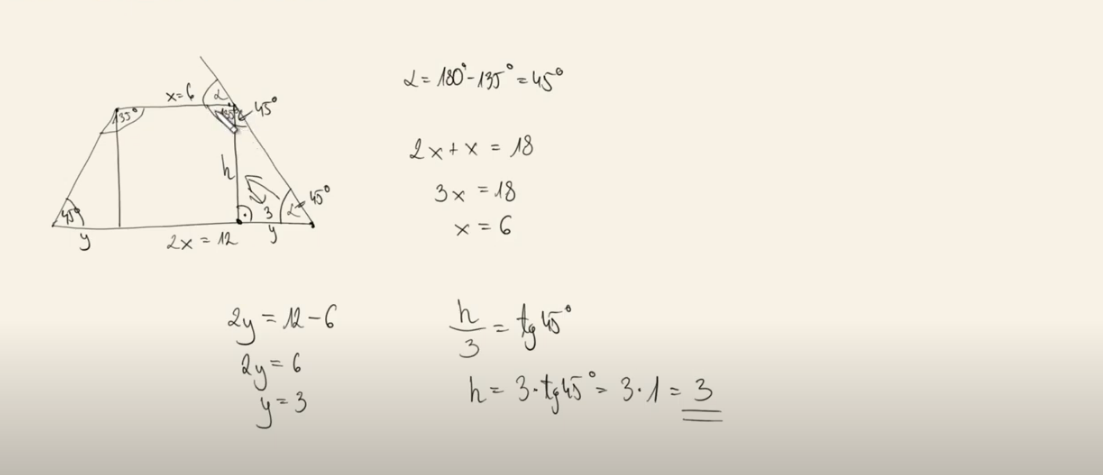 x=6
α
45°
135°
135°
h
45°
45°
3
α
y
2x = 12
y
α = 180° - 135° = 45°
2x + x = 18
3x = 18
x = 6
2y = 12 - 6
2y = 6
y = 3
h/3 = tg 45°
h = 3·tg45° = 3·1 = 3